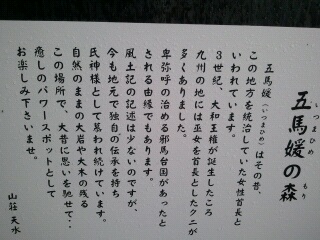 五馬媛の森
いつまひめ もり
五馬媛(いつまひめ)はその昔、
この地方を統治していた女性首長と
いわれています。
3世紀、大和王権が誕生したころ
九州の地には巫女を首長としたクニが
多くありました。
卑弥呼の治める邪馬台国があったと
される由縁でもあります。
風土記の記述は少ないのですが、
今も地元で独自の伝承を持ち
氏神様として慕われ続けています。
自然のままの大岩や大木の残る
この場所で、大昔に思いを馳せて・・
癒しのパワースポットとして
お楽しみ下さいませ。
山荘 天水